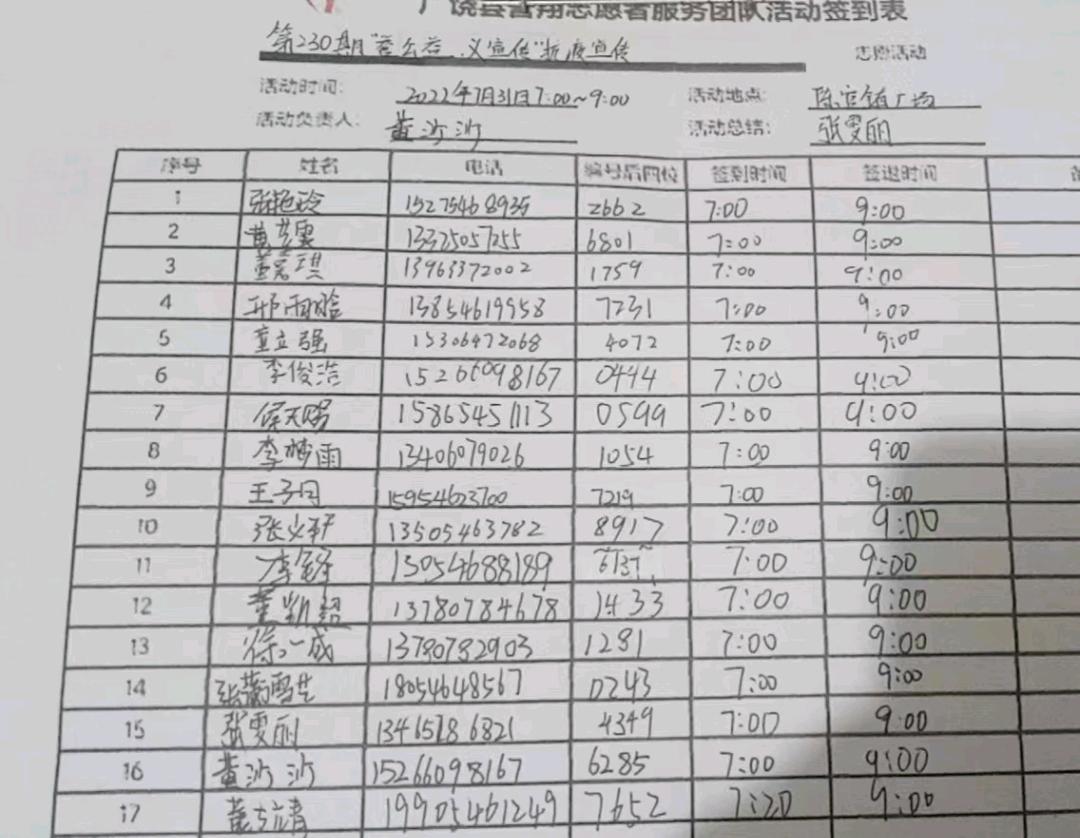 广饶县善翔志愿者服务团队活动签到表
第230期"善公益 义宣传"抗疫宣传 志愿活动
活动时间: 2022年7月31日7:00~9:00 活动地点: 陈官镇广场
活动负责人: 黄沙沙 活动总结: 张雯丽
序号 姓名 电话 编号后四位 签到时间 签退时间
1 张艳玲 15275468935 2662 7:00 9:00
2 13325057255 6801 7:00 9:00
3 董嘉琪 13963372002 1759 7:00 9:00
4 邢雨晗 13854619958 7231 7:00 9:00
5 董立强 15306472068 4072 7:00 9:00
6 李俊浩 15266098167 0444 7:00 9:00
7 侯天赐 15865451113 0599 7:00 9:00
8 李梦雨 13406079026 1054 7:00 9:00
9 王子月 15954623700 7219 7:00 9:00
10 张义轩 13505463782 8917 7:00 9:00
11 13054688189 6137 7:00 9:00
12 董凯超 13780784678 1433 7:00 9:00
13 徐一成 13780782903 1281 7:00 9:00
14 18054648567 0243 7:00 9:00
15 张雯丽 13465786821 4349 7:00 9:00
16 黄沙沙 15266098167 6285 7:00 9:00
17 19905461249 7652 7:20 9:00